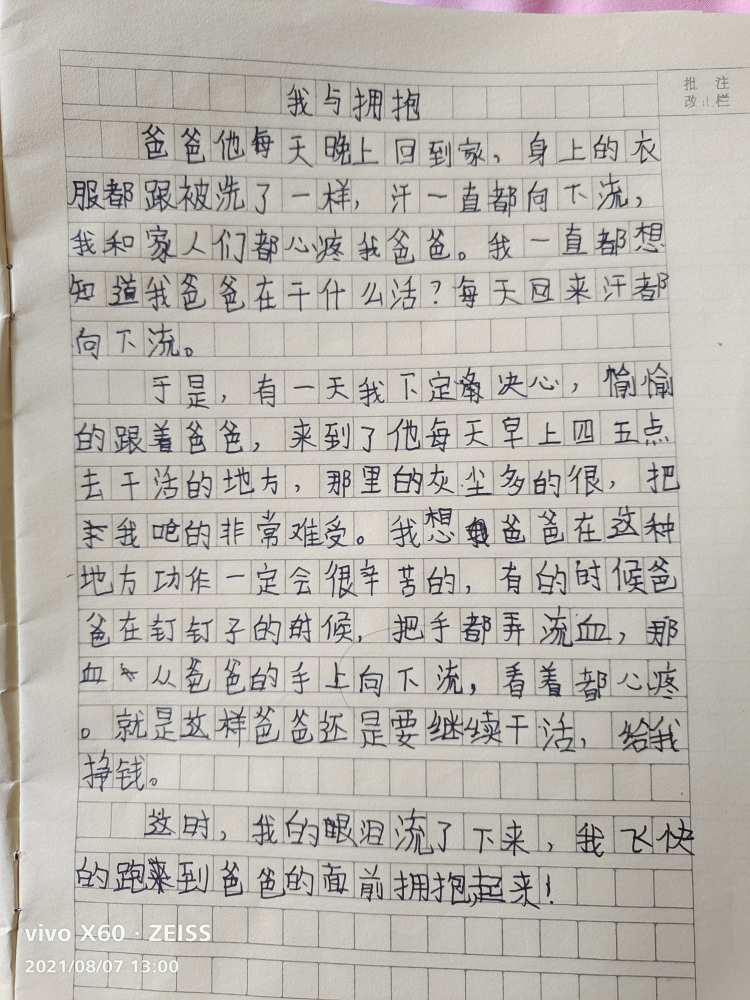 批 注
改 栏
我与拥抱
爸爸他每天晚上回到家，身上的衣
服都跟被洗了一样，汗一直都向下流，
我和家人们都心疼我爸爸。我一直都想
知道我爸爸在干什么活？每天回来汗都
向下流。
于是，有一天我下定决心，愉愉
的跟着爸爸，来到了他每天早上四五点
去干活的地方，那里的灰尘多的很，把
我呛的非常难受。我想爸爸在这种
地方功作一定会很辛苦的，有的时候爸
爸在钉钉子的时候，把手都弄流血，那
血从爸爸的手上向下流，看着都心疼
。就是这样爸爸还是要继续干活，给我
挣钱。
这时，我的眼泪流了下来，我飞快
的跑到爸爸的面前拥抱起来！
vivo X60 · ZEISS
2021/08/07 13:00